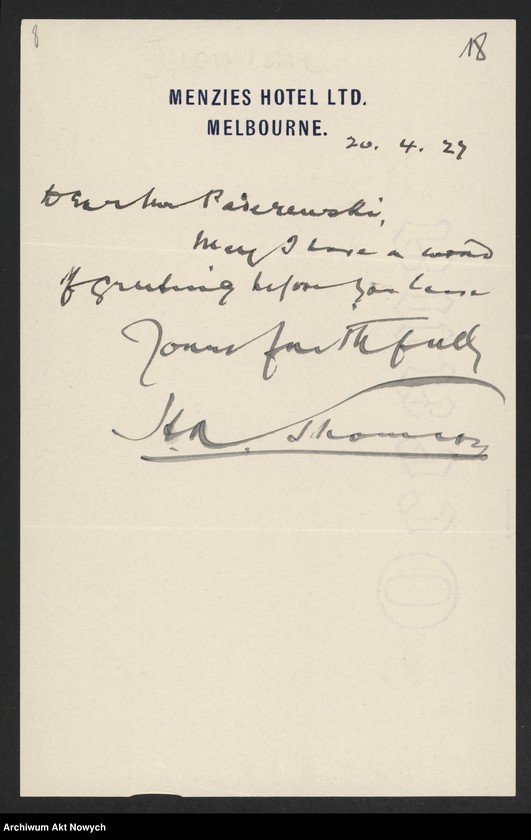 8
18
MENZIES HOTEL LTD.
MELBOURNE.
20. 4. 27
Dear Mr Paderewski,
May I have a word
of greeting before you leave
Yours faithfully
Thomson
Archiwum Akt Nowych